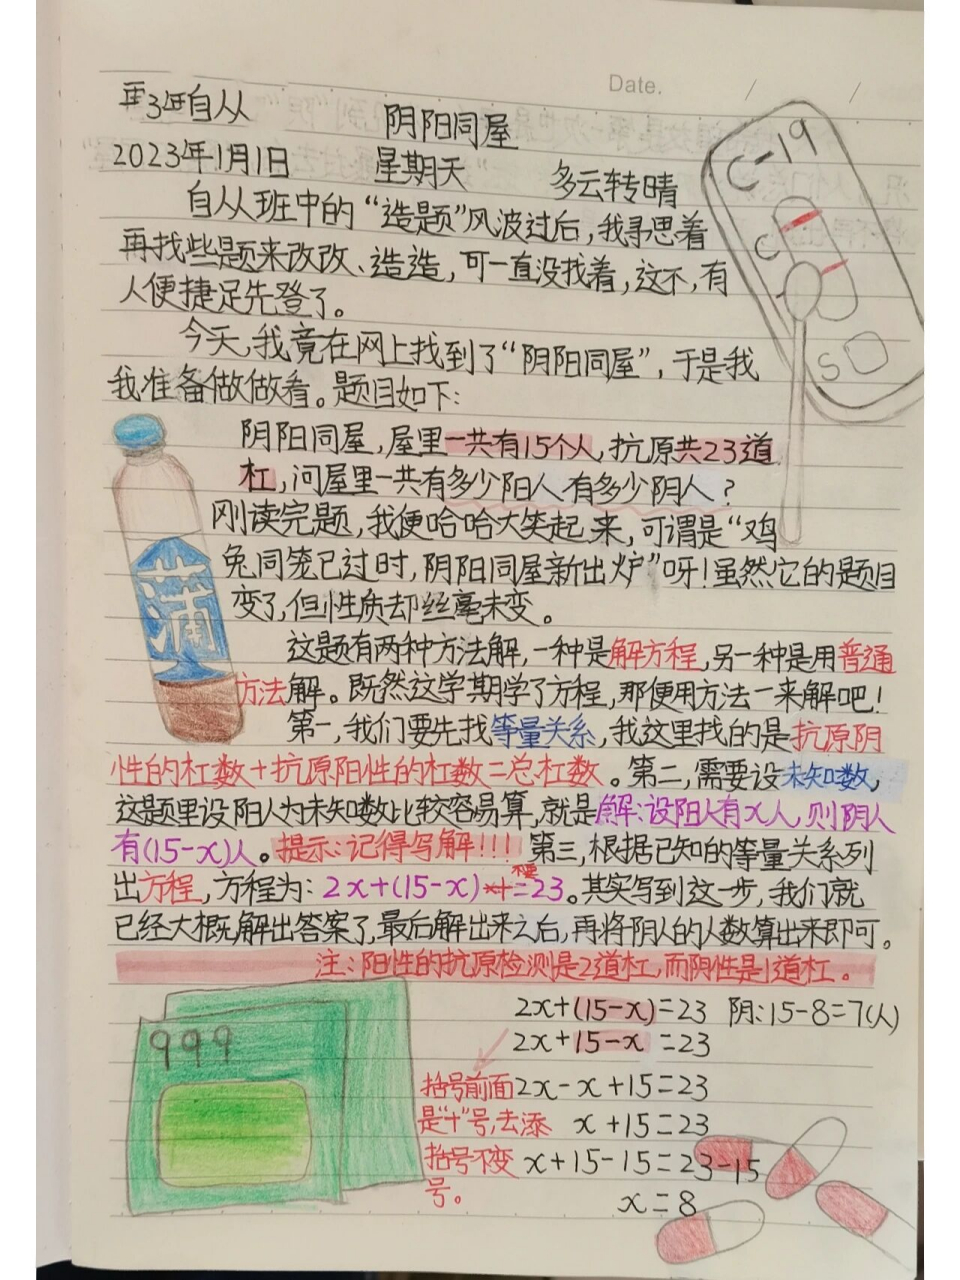 Date.
自从
阴阳同屋
2023年1月1日 星期天 多云转晴
自从班中的“造题”风波过后,我寻思着
再找些题来改改、造造,可一直没找着,这不,有
人便捷足先登了。
今天,我竟在网上找到了“阴阳同屋”,于是我
我准备做做看。题目如下:
阴阳同屋,屋里一共有15个人,抗原共23道
杠,问屋里一共有多少阳人有多少阴人?
刚读完题,我便哈哈大笑起来,可谓是“鸡
兔同笼已过时,阴阳同屋新出炉”呀!虽然它的题目
变了,但性质却丝毫未变。
这题有两种方法解,一种是解方程,另一种是用普通
方法解。既然这学期学了方程,那便用方法一来解吧!
第一,我们要先找等量关系,我这里找的是抗原阴
性的杠数+抗原阳性的杠数=总杠数。第二,需要设未知数,
这题里设阳人为未知数比较容易算,就是解:设阳人有x人,则阴人
有(15-x)人。提示:记得写解!!!第三,根据已知的等量关系列
出方程,方程为:2x+(15-x)=23。其实写到这一步,我们就
已经大概解出答案了,最后解出来之后,再将阴人的人数算出来即可。
注:阳性的抗原检测是2道杠,而阴性是1道杠。
2x+(15-x)=23 阴:15-8=7(人)
2x+15-x=23
括号前面 2x-x+15=23
是“+”号,去添 x+15=23
括号不变 x+15-15=23-15
号。 x=8
C-19
C
S
蒲
999